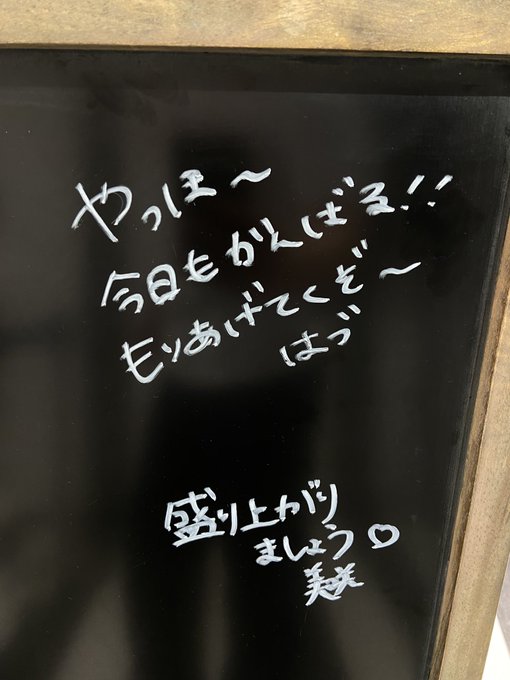 やっほ〜
今日もがんばる!!
もりあげてくぞ〜
はづ
盛り上がり
ましょう♡
美咲